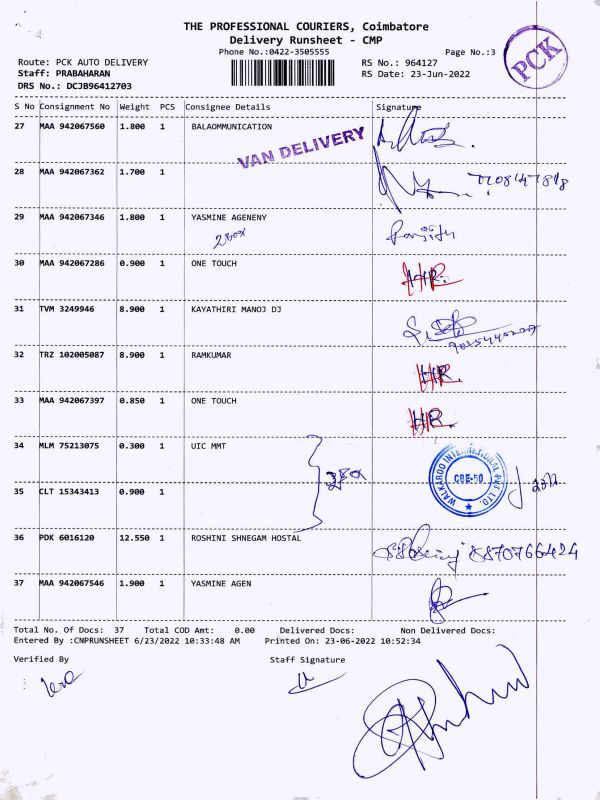 THE PROFESSIONAL COURIERS, Coimbatore
Delivery Runsheet - CMP
Phone No.:0422-3505555
Page No.:3
PCK
Route: PCK AUTO DELIVERY
RS No.: 964127
Staff: PRABAHARAN
RS Date: 23-Jun-2022
DRS No.: DCJB96412703
S No Consignment No Weight PCS Consignee Details Signature
27 MAA 942067560 1.800 1 BALAOMMUNICATION
VAN DELIVERY
28 MAA 942067362 1.700 1
29 MAA 942067346 1.800 1 YASMINE AGENENY
30 MAA 942067286 0.900 1 ONE TOUCH HR.
31 TVM 3249946 8.900 1 KAYATHIRI MANOJ DJ
32 TRZ 102005087 8.900 1 RAMKUMAR HR.
33 MAA 942067397 0.850 1 ONE TOUCH HR.
34 MLM 75213075 0.300 1 UIC MMT
WALKAROO INTERNATIONAL PVT LTD.
CBE-50
35 CLT 15343413 0.900 1
36 PDK 6016120 12.550 1 ROSHINI SHNEGAM HOSTAL 8870766424
37 MAA 942067546 1.900 1 YASMINE AGEN
Total No. Of Docs: 37 Total COD Amt: 0.00 Delivered Docs: Non Delivered Docs:
Entered By :CNPRUNSHEET 6/23/2022 10:33:48 AM Printed On: 23-06-2022 10:52:34
Verified By Staff Signature